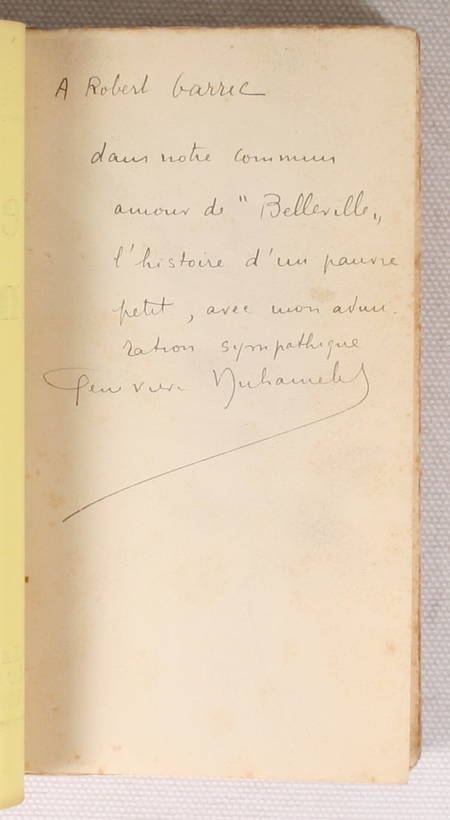 A Robert Garric
dans notre commun
amour de "Belleville„
l'histoire d'un pauvre
petit, avec mon admi-
ration sympathique
Geneviève Duhamelet